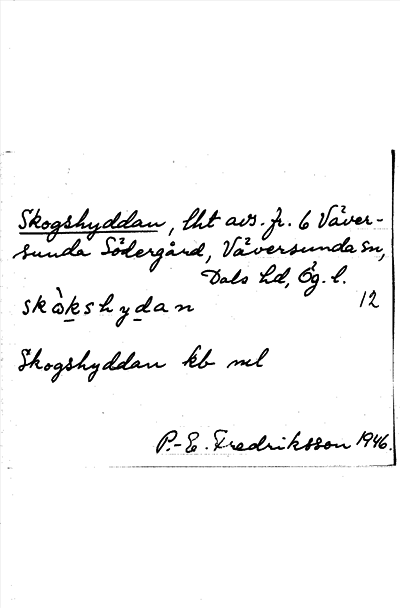 Skogshyddan, lht avs. fr. 6 Väver-
sunda Södergård, Väversunda sn,
Dals hd, Ög. l.
12
skò̩kshydan
Skogshyddan kb ml
P.-E. Fredriksson 1946.